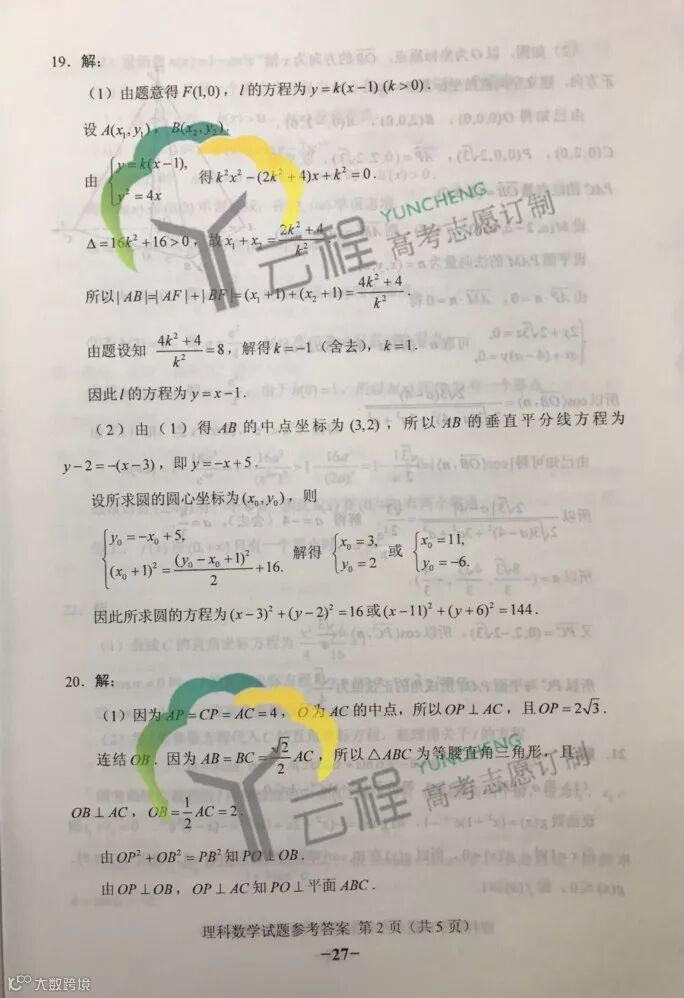 19. 解:
（1）由题意得 F(1,0)，l 的方程为 y=k(x-1) (k>0).
设 A(x₁,y₁)，B(x₂,y₂),
由 { y=k(x-1), y²=4x 得 k²x²-(2k²+4)x+k²=0.
Δ=16k²+16>0，故 x₁+x₂=(2k²+4)/k².
所以|AB|=|AF|+|BF|=(x₁+1)+(x₂+1)=(4k²+4)/k².
由题设知 (4k²+4)/k²=8，解得 k=-1（舍去），k=1.
因此 l 的方程为 y=x-1.
（2）由（1）得 AB 的中点坐标为 (3,2)，所以 AB 的垂直平分线方程为
y-2=-(x-3)，即 y=-x+5.
设所求圆的圆心坐标为 (x₀,y₀)，则
{ y₀=-x₀+5, (x₀+1)²=(y₀-x₀+1)²/2+16. 解得 { x₀=3, y₀=2 或 { x₀=11, y₀=-6.
因此所求圆的方程为 (x-3)²+(y-2)²=16 或 (x-11)²+(y+6)²=144.
20. 解:
（1）因为 AP=CP=AC=4，O 为 AC 的中点，所以 OP⊥AC，且 OP=2√3.
连结 OB. 因为 AB=BC=√2/2 AC，所以 △ABC 为等腰直角三角形，且
OB⊥AC，OB=1/2 AC=2.
由 OP²+OB²=PB² 知 PO⊥OB.
由 OP⊥OB，OP⊥AC 知 PO⊥平面 ABC.
理科数学试题参考答案 第2页（共5页）
-27-
云程
YUNCHENG
高考志愿订制
云程
YUNCHENG
高考志愿订制
大数跨境